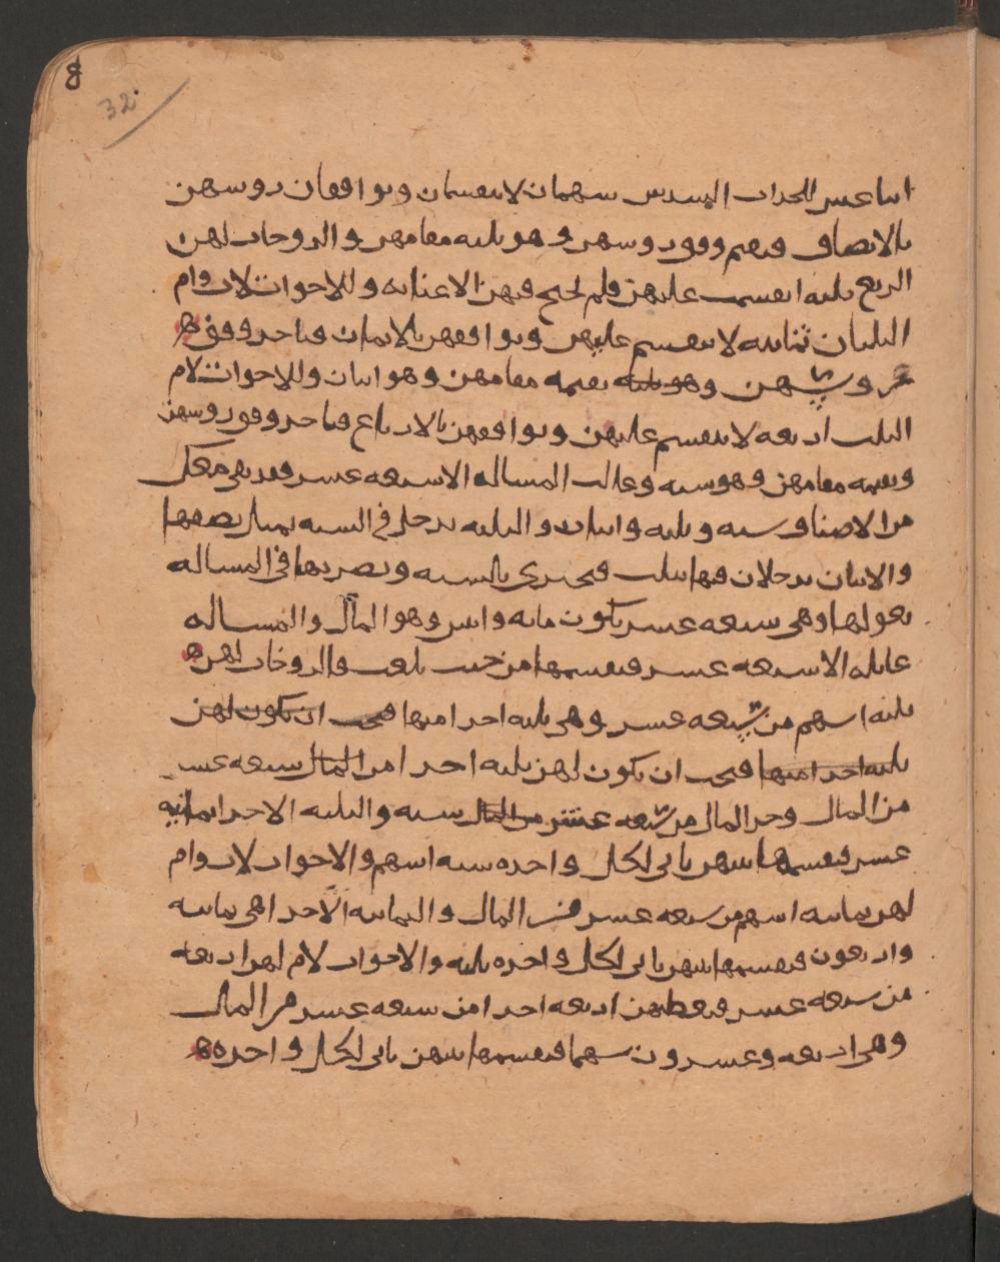 8
32
اثنا عشر للجدات السدس سهمان لا ينقسمان ويوافقان روسهن
بالانصاف فيهم وفق روسهن وهو ثلثه مقامهن والزوجات لهن
الربع ثلثه انقسمت عليهن فلم نحتج فيهن الا عنايه وللاخوات لاب وام
الثلثان ثمانيه لا ينقسم عليهن ويوافقهن بالاثمان فياخذ وفق
روسهن وهو ثلثه نقيمه مقامهن وهو اثنان وللاخوات لام
الثلث اربعه لا ينقسم عليهن ويوافقهن بالارباع فياخذ وفق روسهن
ونقيمه مقامهن وهو سته وعالت المساله الا سبعه عشر فقد بقى معك
من الاصناف سته وثلثه واثنان والثلثه تدخل في السته بمثل نصفها
والاثنان يدخلان فيها بثلث فيجتزى بالسته وتضربها في المساله
بعولها وهى سبعه عشر يكون مايه واثنين وهو المال والمساله
عايله الا سبعه عشر فيقسمها من حيث بلغت فالزوجات لهن
ثلثه اسهم من سبعه عشر وهى ثلثه اجزا منها فيجب ان يكون لهن
ثلثه اجزا منها فيجب ان يكون لهن ثلثه اجزا من المال سبعه عشر
من المال وجز المال من سبعه عشر من المال سته والثلثه الاجزا ثمانيه
عشر فيقسمها بينهن ياتى لكل واحده سته اسهم والاخوات لاب وام
لهن ثمانيه اسهم من سبعه عشر من المال والثمانيه الاجزا هى ثمانيه
واربعون فيقسمها بينهن ياتى لكل واحده ثلثه والاخوات لام لهن اربعه
من سبعه عشر فيعطيهن اربعه اجزا من سبعه عشر من المال
وهى اربعه وعشرون سهما فيقسمها بينهن ياتى لكل واحده